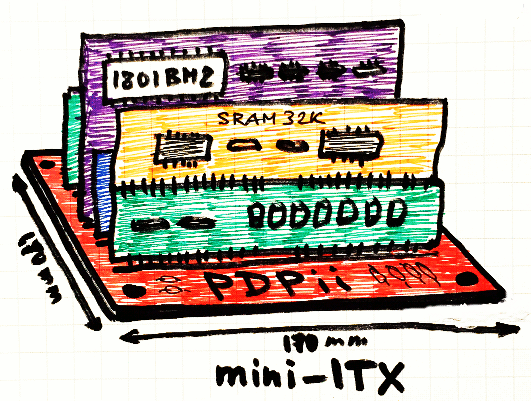 1801BM2
SRAM 32K
PDPii
170 mm
170 mm
mini-ITX